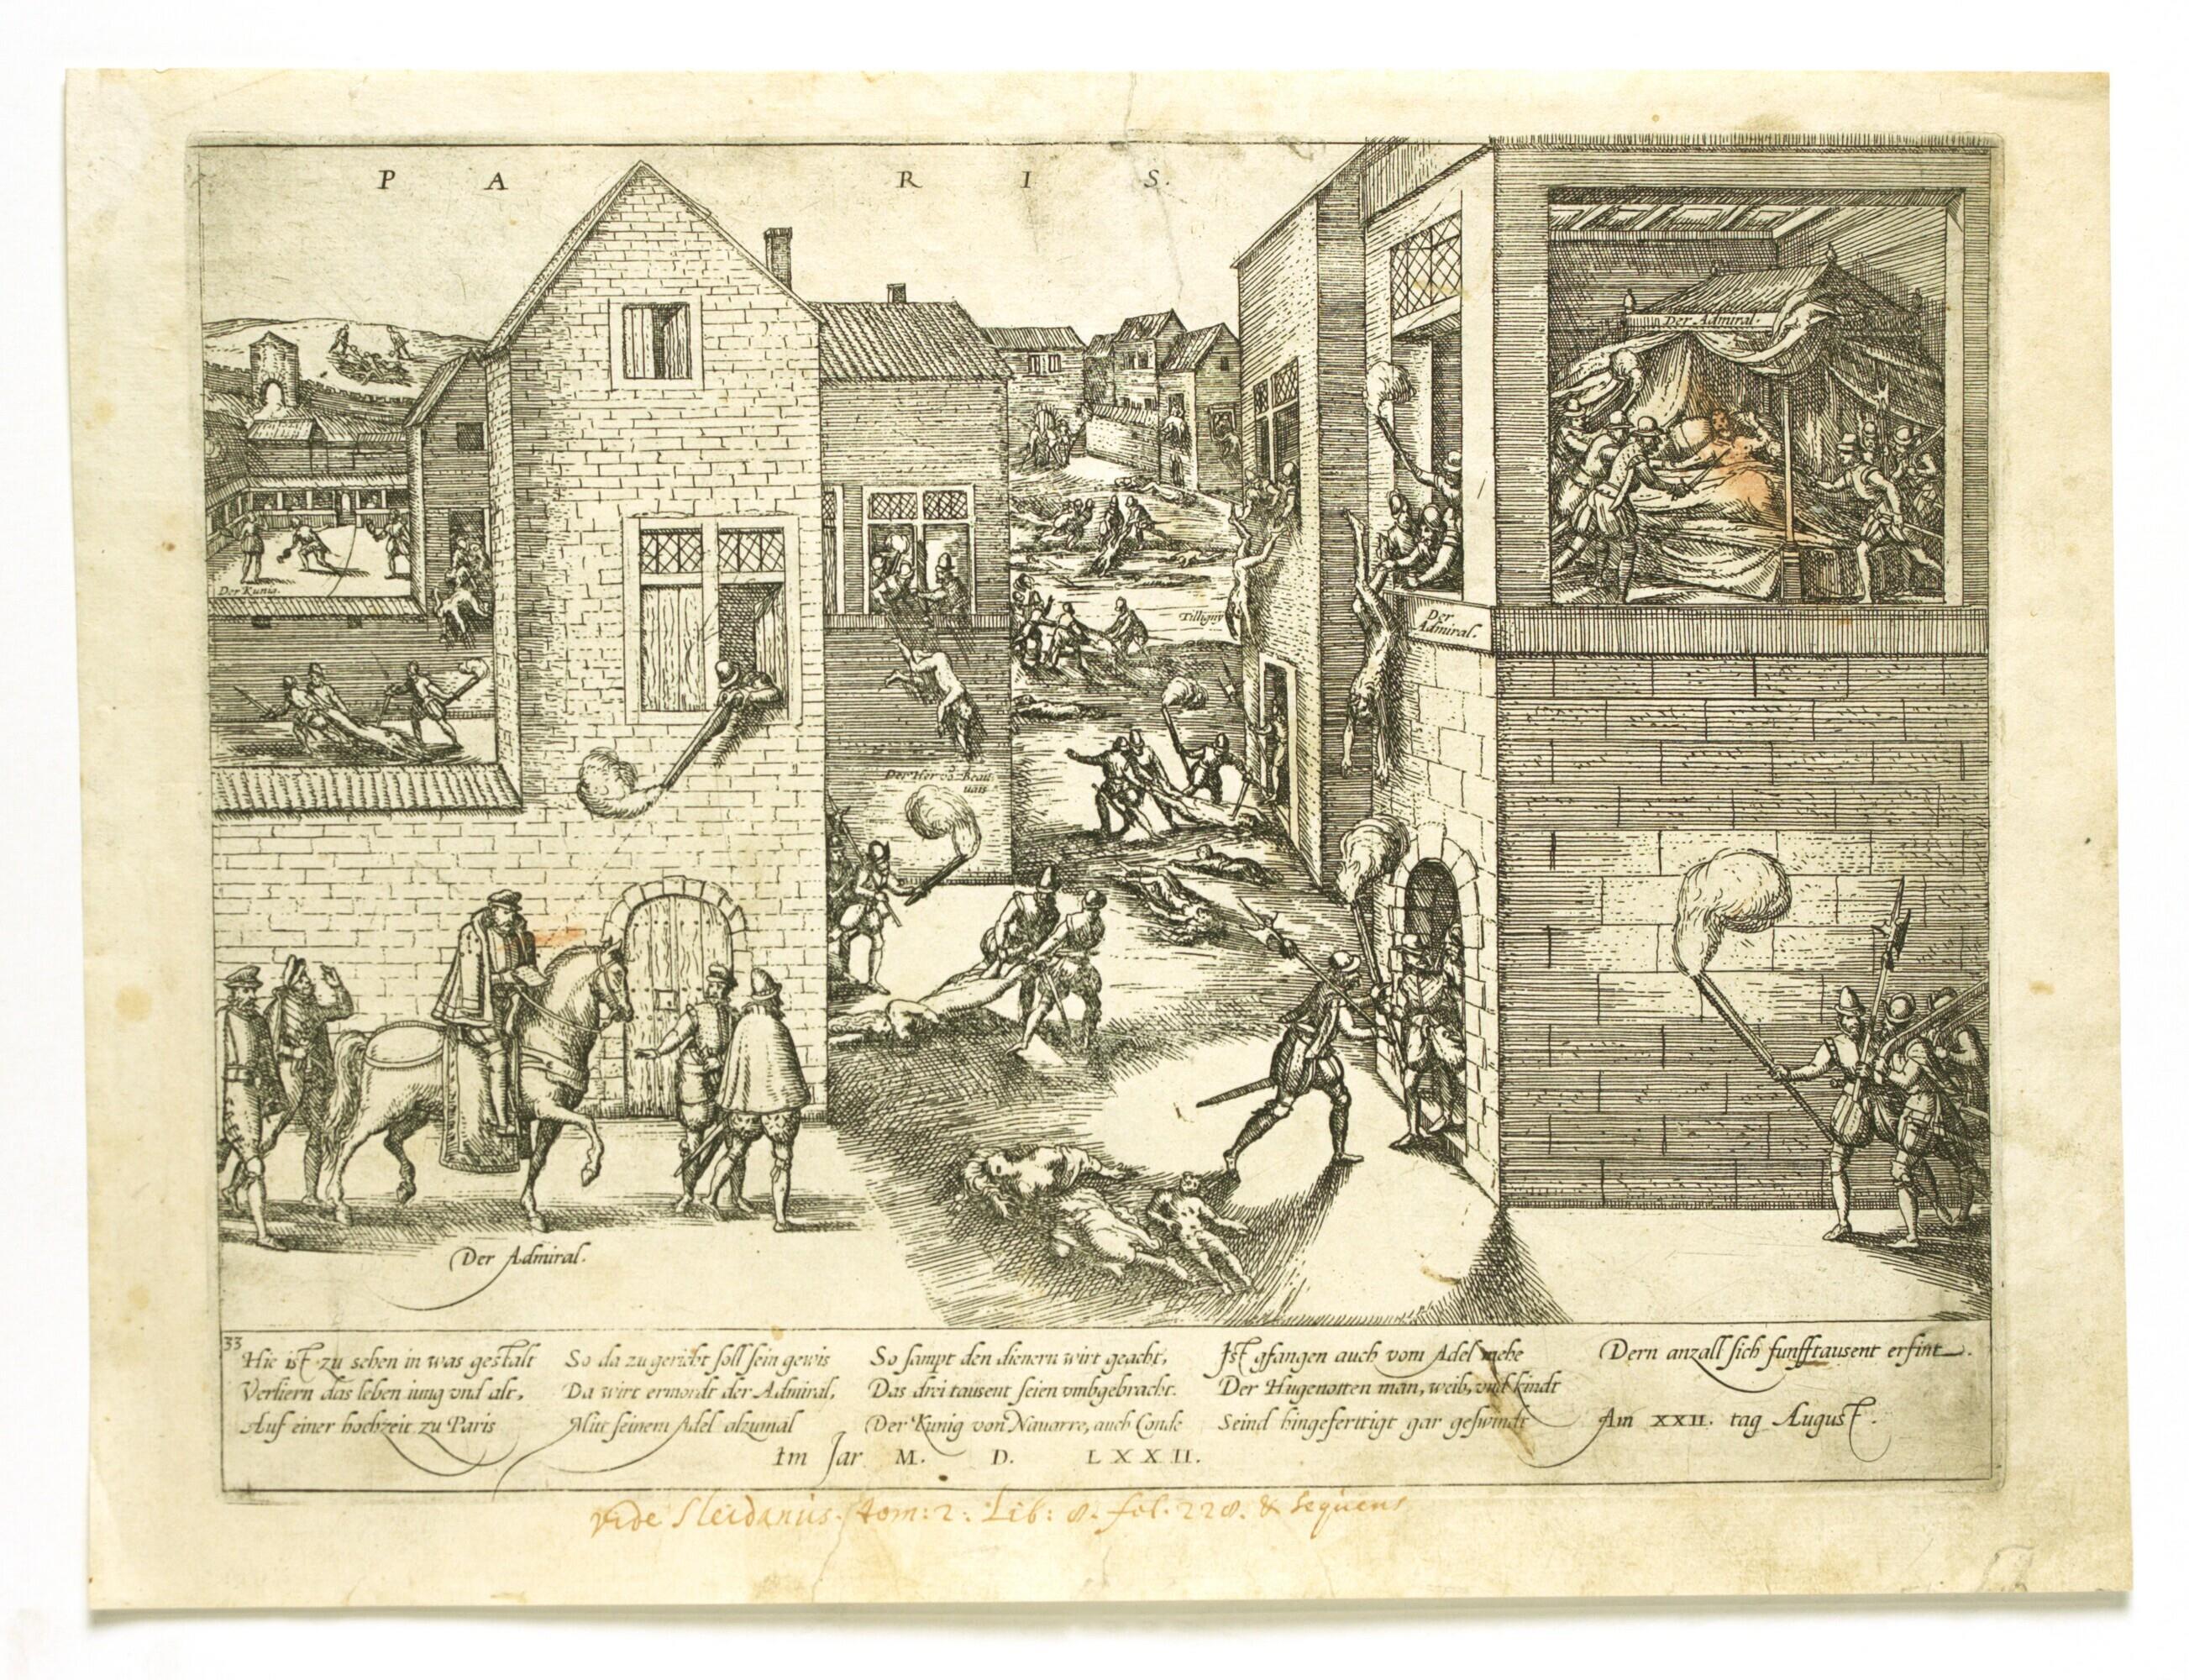 P A R I S.
Der Admiral.
Der Kunig.
Der Admiral.
Tilligni
Der Her vō Beau
uais
Der Admiral.
33
Hie ist zu sehen in was gestalt
Verliern das leben iung vnd alt,
Auf einer hochzeit zu Paris
So da zu gericht soll sein gewis
Da wirt ermordt der Admiral,
Mitt seinem Adel alzumal
So sampt den dienern wirt geacht,
Das drei tausent seien vmbgebracht.
Der Kunig von Nauarre, auch Conde
Ist gfangen auch vom Adel mehe
Der Hugenotten man, weib, vnd kindt
Seind hingefertigt gar geswindt
Dern anzall sich funfftausent erfint.
Am XXII. tag August.
Im Jar M. D. LXXII.
vide Sleidanus. tom: 2: Lib: 8. fol. 228. & sequens